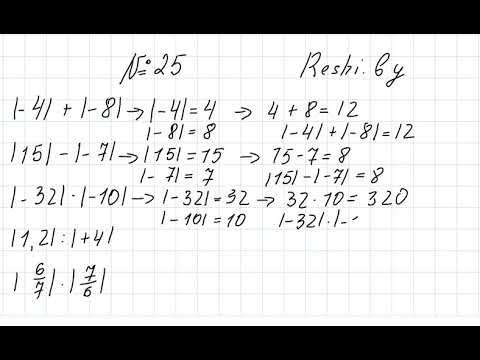 №25 Reshi.by
|-4| + |-8| → |-4| = 4 → 4 + 8 = 12
|-8| = 8 |-4| + |-8| = 12
|15| - |-7| → |15| = 15 → 15 - 7 = 8
|-7| = 7 |15| - |-7| = 8
|-32| · |-10| → |-32| = 32 → 32 · 10 = 320
|-10| = 10 |-32| · |-
|1,2| : |+4|
|6/7| · |7/6|